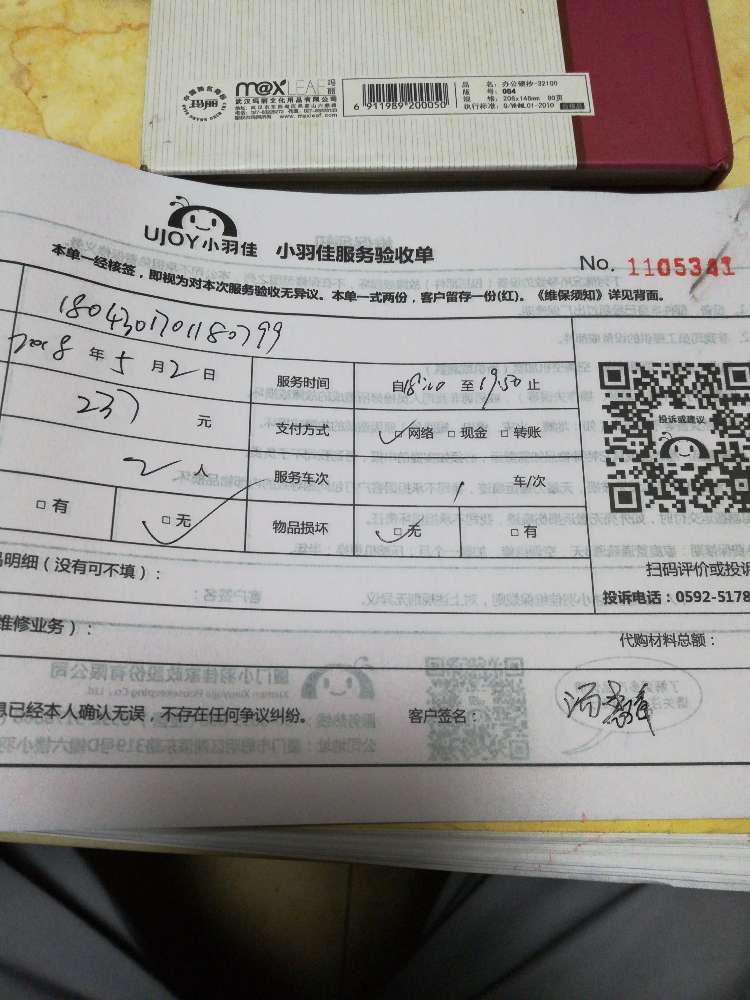 中国驰名商标
玛丽
m@xLEAF 玛丽
武汉玛丽文化用品有限公司
www.maxleaf.com
6 911989 200050
品 名: 办公硬抄-32100
版 号: 064
规 格: 208×146mm 90页
UJOY小羽佳 小羽佳服务验收单
No. 1105341
本单一经核签,即视为对本次服务验收无异议。本单一式两份,客户留存一份(红)。《维保须知》详见背面。
1804301701180799
2018 年 5 月 2 日 服务时间 自 18:10 至 19:50 止
237 元 支付方式 ✓□网络 □现金 □转账
投诉或建议
2 人 服务车次 1 车/次
□有 □无 物品损坏 □无 □有
明细(没有可不填):
扫码评价或投诉
投诉电话:0592-5178
维修业务):
代购材料总额:
息已经本人确认无误,不存在任何争议纠纷。 客户签名: